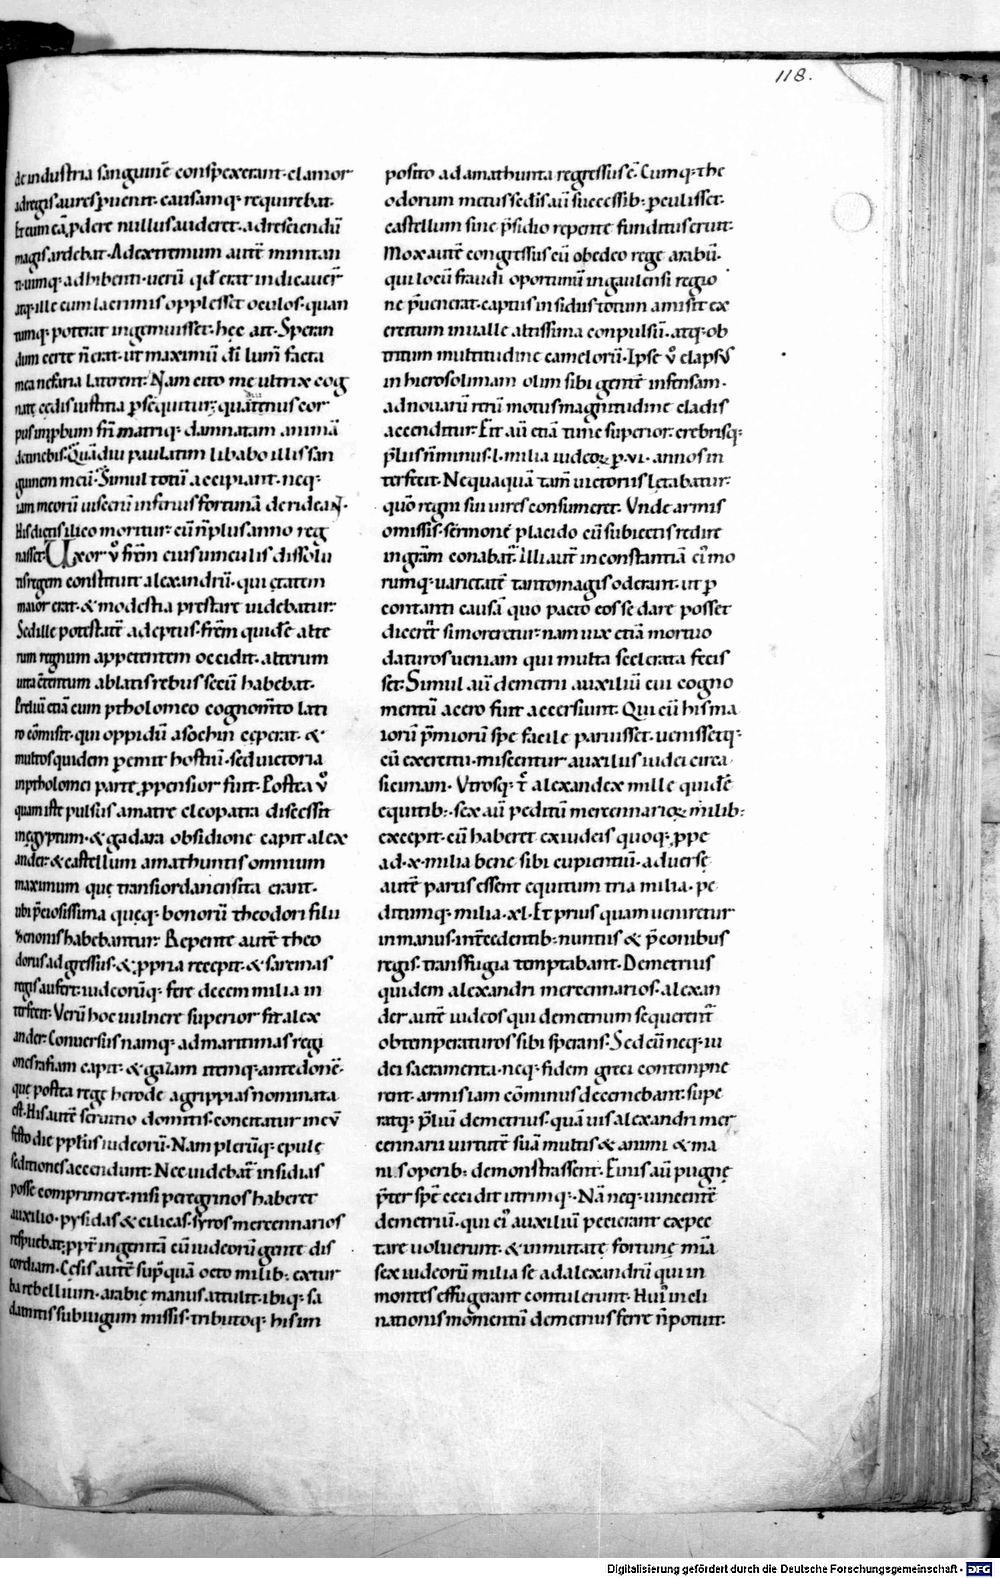 118.
de industria sanguinē conspexerant· clamor
ad regis aures ꝑuenit· causamq· requirebat·
Et cum eā ꝓdere nullus auderet· ad resciendū
magis ardebat· Ad extremum autē minitan
ti· uimq· adhibenti· uerū qd̄ erat indicauer̄
atq· ille cum lacrimis opplesset oculos· quan
tumq· poterat ingemuisset· hęc ait· Speran
dum certe n̄ erat· ut maximū dī lum̄ facta
mea nefaria laterent· Nam cito me ultrix cog
natę cędis iustitia ꝑsequitur· quatenus cor
pus improbum frī matriq· damnatam animā
detinebis· Quādiu paulatim libabo illis san
guinem meū· Simul totū accipiant· neq·
iam meorū uiscerū inferius fortunā derideaN·
His dictis ilico moritur· cū n̄ plus anno reg
nasset· Uxor v̊ frēm eius uinculis dissolu
tis regem constituit alexandrū· qui ętatem
maior erat· & modestia prestare uidebatur·
Sed ille potestatē adeptus· frēm quidē alte
rum regnum appetentem occidit· alterum
uita c̄tentum ablatis rebus secū habebat·
Preliū etiā cum ptholomeo cognom̄to lati
ro cōmisit· qui oppidū asochin ceperat· &
multos quidem ꝑemit hostiū· sed uictoria
in ptholomei parte ꝓpensior fuit· Postea v̊
quam iste pulsus a matre cleopatra discessit
in ęgyptum· & gadara obsidione capit alex
ander· & castellum amathuntis omnium
maximum quę trans iordanen sita erant·
ubi p̄ciosissima quęq· bonorū theodori filii
zenonis habebantur· Repente autē theo
dorus adgressus· & ꝓpria recepit· & sarcinas
regis aufert· iudeorūq· fere decem milia in
terfecit· Verū hoc uulnere superior fit alex
ander· Conuersus namq· ad maritimas regi
ones rafiam capit· & gazam itemq· antedonē·
que postea rege herode agrippias nominata
est· His autē seruitio domitis· concitatur in eū
festo die ppl̄us iudeorū· Nam plerūq· epule
seditiones accendunt· Nec uidebat̄ insidias
posse comprimere· nisi peregrinos haberet
auxilio· pysidas & cilicas· syros mercennarios
respuebat· ꝓpt̄ ingenitā cū iudeorū gente dis
cordiam· Cęsis autē sup̄ quā octo milib; extur
ba rebellium· arabię manus attulit· ibiq· ga
laditis subiugum missis· tributoq· his im
posito ad amathunta regressus ē· Cumq· the
odorum metus sedis aū successib; ꝑculisset·
castellum sine p̄sidio repente funditus eruit·
Mox autē congressus cū obedeo rege arabū·
qui locū fraudi oportunū in gaulensi regio
ne p̄uenerat· captus insidiis totum amisit ex
ercitum in ualle altissima conpulsū· atq· ob
tritum multitudine camelorū· Ipse v̊ elapsus
in hierosolimam olim sibi gentē infensam·
ad nouarū rerū motus magnitudine cladis
accenditur· Fit aū etiā tunc superior· crebrisq·
p̄lus n̄ minus· l· milia iudeoꝝ ꝑ· vi· annos in
terfecit· Nequaquā tam̄ uictoriis lętabatur·
quō regni sui uires consumeret· Vnde armis
omissis· sermone placido cū subiectis redire
in grām conabat̄· Illi autē inconstantiā ei᷒ mo
rumq· uarietatē tantomagis oderant· ut ꝑ
contanti causā quo pacto eos sedare posset
dicer̄ si moreretur· nam uix etiā mortuo
daturos ueniam qui multa scelerata fecis
set· Simul aū demetrii auxiliū cui cogno
mentū acero fuit accersiunt· Qui cū his ma
iorū p̄miorū spe facile paruisset· uenissetq·
cū exercitu· miscentur auxiliis iudei circa
sicimam· Vtrosq· t̄ alexander mille quidē
equitib;· sex aū peditū mercennarioꝝ milib;
excepit· cū haberet ex iudeis quoq· ꝓpe
ad· x· milia bene sibi cupientiū· aduersę
autē partis essent equitum tria milia· pe
ditumq· milia· xl· Et prius quam ueniretur
in manus· int̄cedentib; nuntiis & p̄conibus
regis· transfugia temptabant· Demetrius
quidem alexandri mercennarios· alexan
der autē iudeos qui demetrium seqerent̄
obtemperaturos sibi sperans· Sed cū neq· iu
dei sacramenta· neq· fidem greci contempne
rent· armis iam cōminus decernebant· supe
ratq· p̄liū demetrius· quā uis alexandri mer
cennarii uirtutē suā multis & animi & ma
nus operib; demonstrassent· Finis aū pugnę
p̄ter spē cecidit utrimq·· Nā neq· uincentē
demetriū· qui ei᷒ auxiliū pecierant expec
tare uoluerunt· & inmutatę fortunę mīa
sex iudeorū milia se ad alexandrū qui in
montes effugerant contulerunt· Hui᷒ incli
nationis momentū demetrius ferre n̄ potuit·
Digitalisierung gefördert durch die Deutsche Forschungsgemeinschaft - DFG